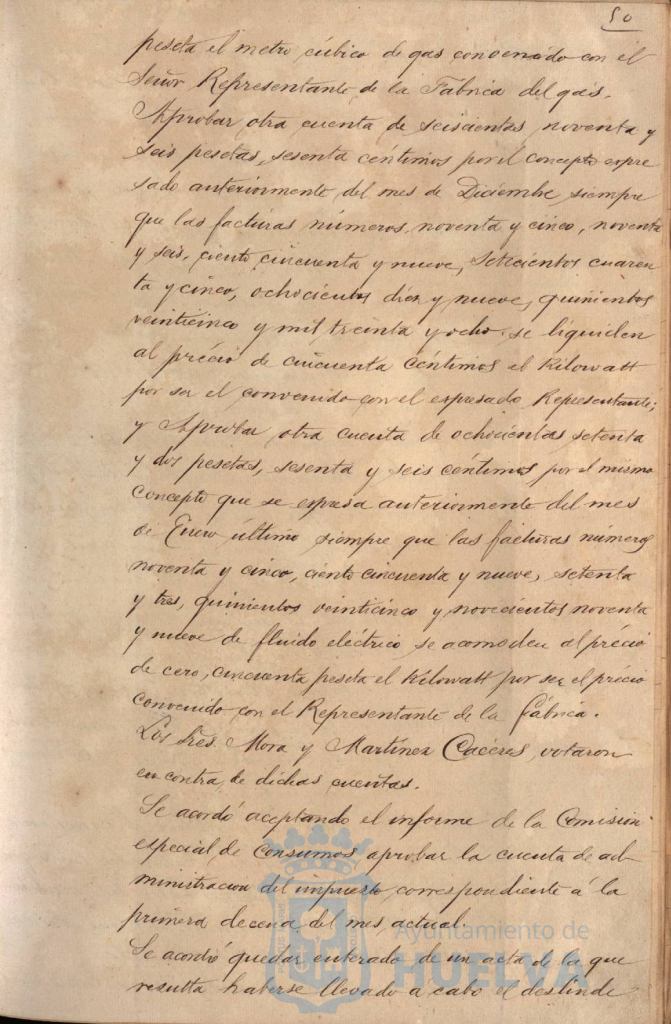 50
peseta el metro cúbico de gas convenido con el
Señor Representante de la Fábrica del gas.
Aprobar otra cuenta de seiscientas, noventa y
seis pesetas, sesenta céntimos por el concepto expre
sado anteriormente del mes de Diciembre, siempre
que las facturas números, noventa y cinco, noventa
y seis, ciento cincuenta y nueve, setecientos cuaren
ta y cinco, ochocientos diez y nueve, quinientos
veinticinco y mil treinta y ocho se liquiden
al précio de cincuenta céntimos el Kilowatt
por ser el convenido con el expresado Representante;
y Aprobar otra cuenta de ochocientas setenta
y dos pesetas, sesenta y seis céntimos, por el mismo
concepto que se expresa anteriormente del mes
de Enero último siempre que las facturas números
noventa y cinco, ciento cincuenta y nueve, setenta
y tres, quinientos veinticinco y novecientos noventa
y nueve de fluido eléctrico se acomoden al précio
de cero, cincuenta peseta el Kilowatt por ser el précio
convenido con el Representante de la fábrica.
Los Sres. Mora y Martínez Caceres, votaron
en contra de dichas cuentas.
Se acordó aceptando el informe de la Comisión
especial de Consumos aprobar la cuenta de ad-
ministracion del impuesto correspondiente á la
primera decena del mes actual.
Se acordó quedar enterado de un acta de la que
resulta haberse llevado a cabo el deslinde
Ayuntamiento de
HUELVA